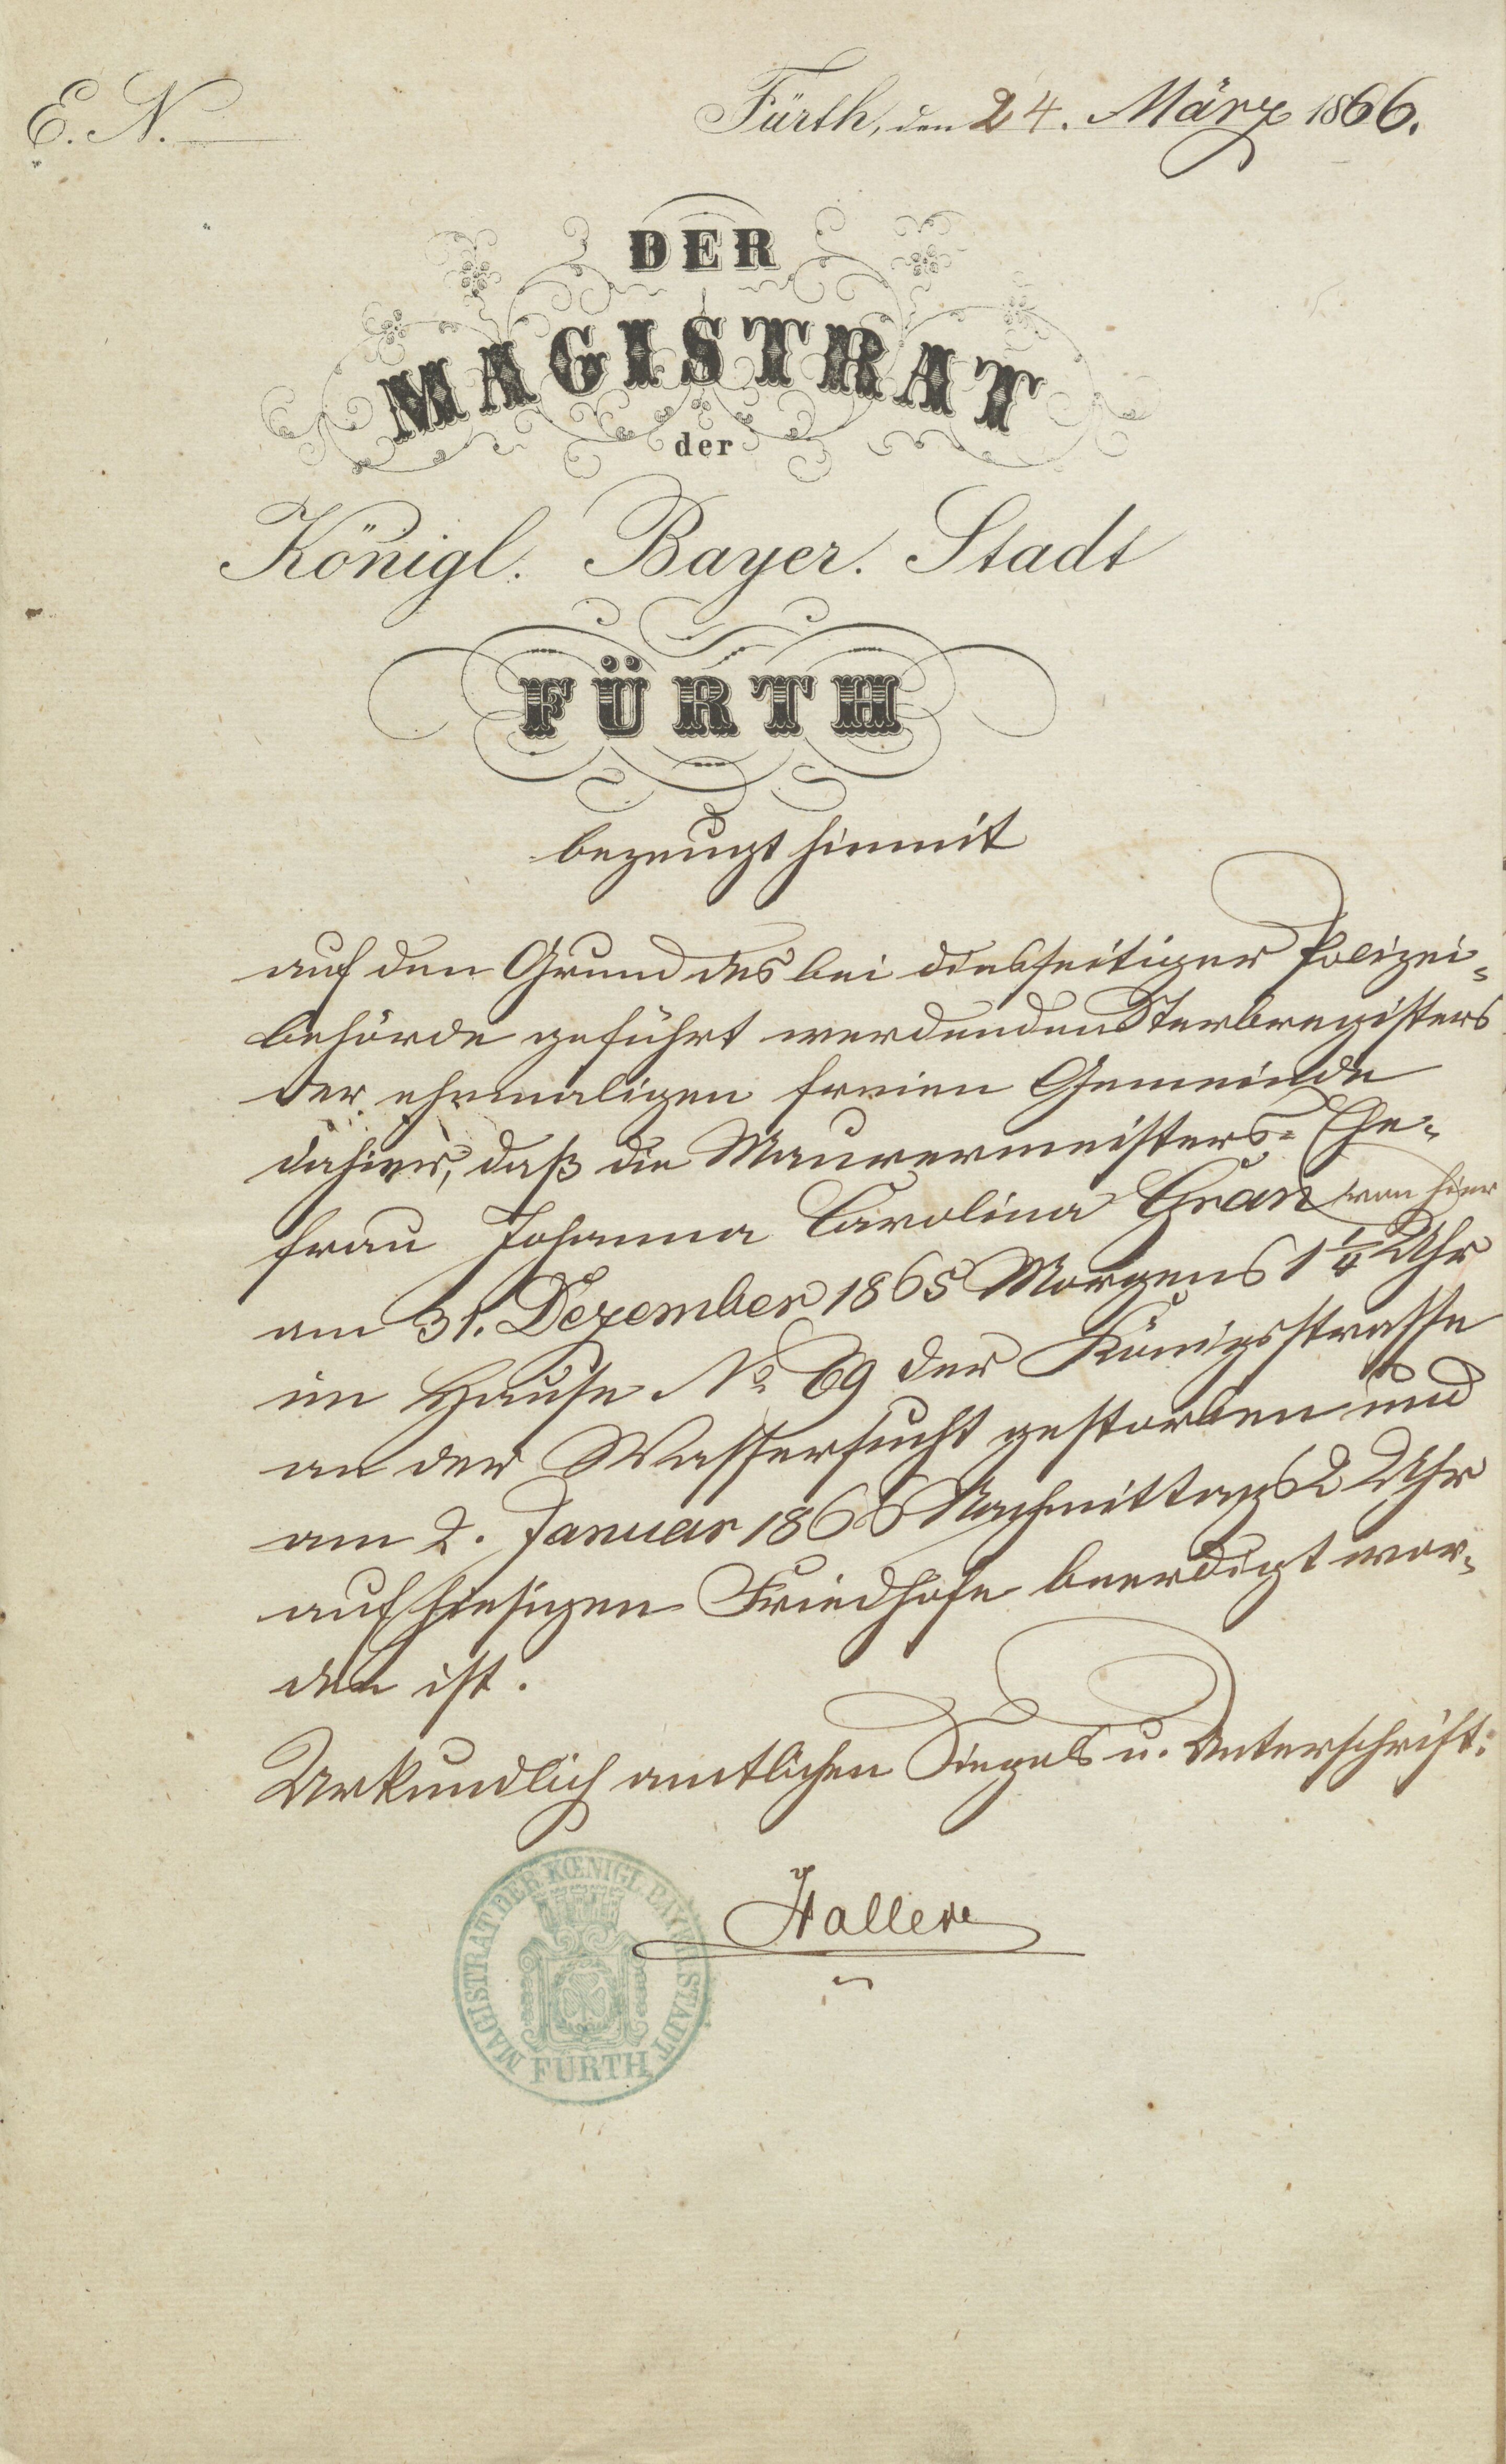 E. N.
Fürth, den 24. März 1866.
DER
MAGISTRAT
der
Königl. Bayer. Stadt
FÜRTH
bezeugt hiemit
auf den Grund des bei diesseitiger Polizei-
behörde geführt werdenden Sterbregisters
der ehemaligen freien Gemeinde
dahier, daß die Maurermeisters-Ehe-
frau Johanna Carolina Gran von hier
am 31. Dezember 1865 Morgens 1 1/4 Uhr
im Hause No. 69 der Königsstrasse
an der Wassersucht gestorben und
am 2. Januar 1866 Nachmittags 2 Uhr
auf hiesigen Friedhofe beerdigt wor-
den ist.
Urkundlich amtlichen Siegels u. Unterschrift.
Haller
MAGISTRAT DER KŒNIGL. BAYER. STADT
FÜRTH